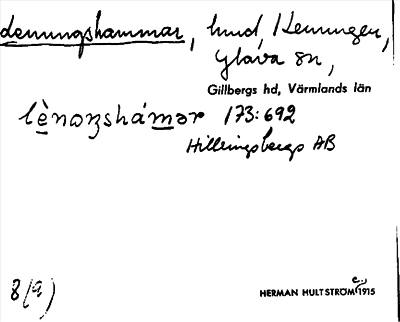 Lenungshammar, hmd, Lenungen,
Glava sn,
Gillbergs hd, Värmlands län
lènoŋshámər 173:692
Hillringsbergs AB
8(9)
HERMAN HULTSTRÖM 1915